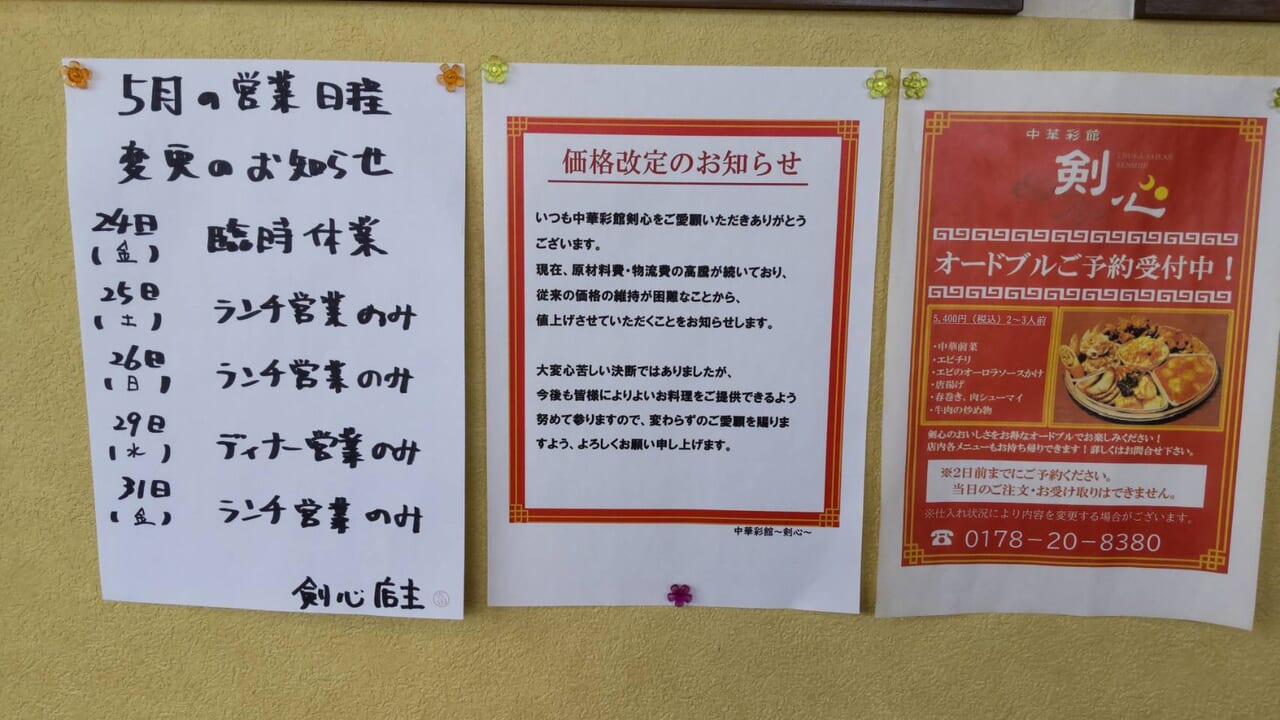 5月の営業日程
変更のお知らせ
24日
(金) 臨時休業
25日
(土) ランチ営業のみ
26日
(日) ランチ営業のみ
29日
(水) ディナー営業のみ
31日
(金) ランチ営業のみ
剣心 店主
価格改定のお知らせ
いつも中華彩館剣心をご愛願いただきありがとう
ございます。
現在、原材料費・物流費の高騰が続いており、
従来の価格の維持が困難なことから、
値上げさせていただくことをお知らせします。
大変心苦しい決断ではありましたが、
今後も皆様によりよいお料理をご提供できるよう
努めて参りますので、変わらずのご愛願を賜りま
すよう、よろしくお願い申し上げます。
中華彩館～剣心～
中華彩館
剣心
オードブルご予約受付中！
5,400円（税込）2～3人前
・中華前菜
・エビチリ
・エビのオーロラソースかけ
・唐揚げ
・春巻き、肉シューマイ
・牛肉の炒め物
剣心のおいしさをお得なオードブルでお楽しみください！
店内各メニューもお持ち帰りできます！詳しくはお問合せ下さい。
※2日前までにご予約ください。
当日のご注文・お受け取りはできません。
※仕入れ状況により内容を変更する場合がございます。
☎ 0178－20－8380